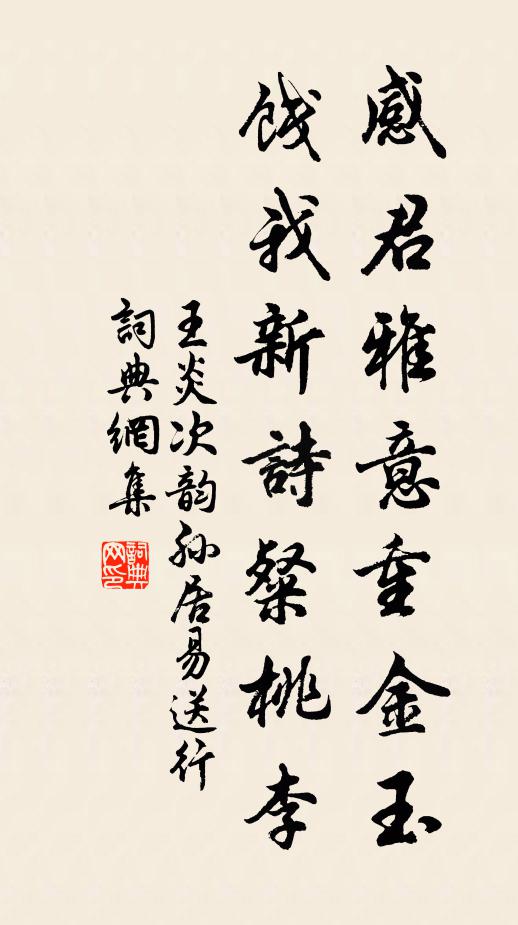 感君雅意重金玉
餞我新詩粲桃李
王炎次韵孙居易送行
詞典網集
詞典网印